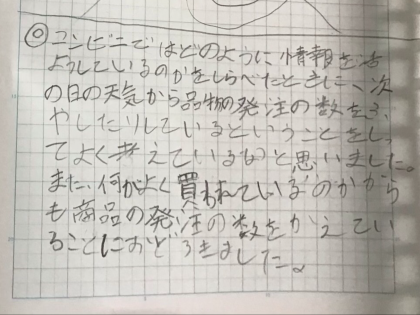 ◎コンビニではどのように情報を活
ようしているのかをしらべたときに、次
の日の天気から品物の発注の数をふ
やしたりしているということをしっ
てよく考えているなと思いました。
また、何がよく買われているのかから
も商品の発注の数をかえてい
ることにおどろきました。